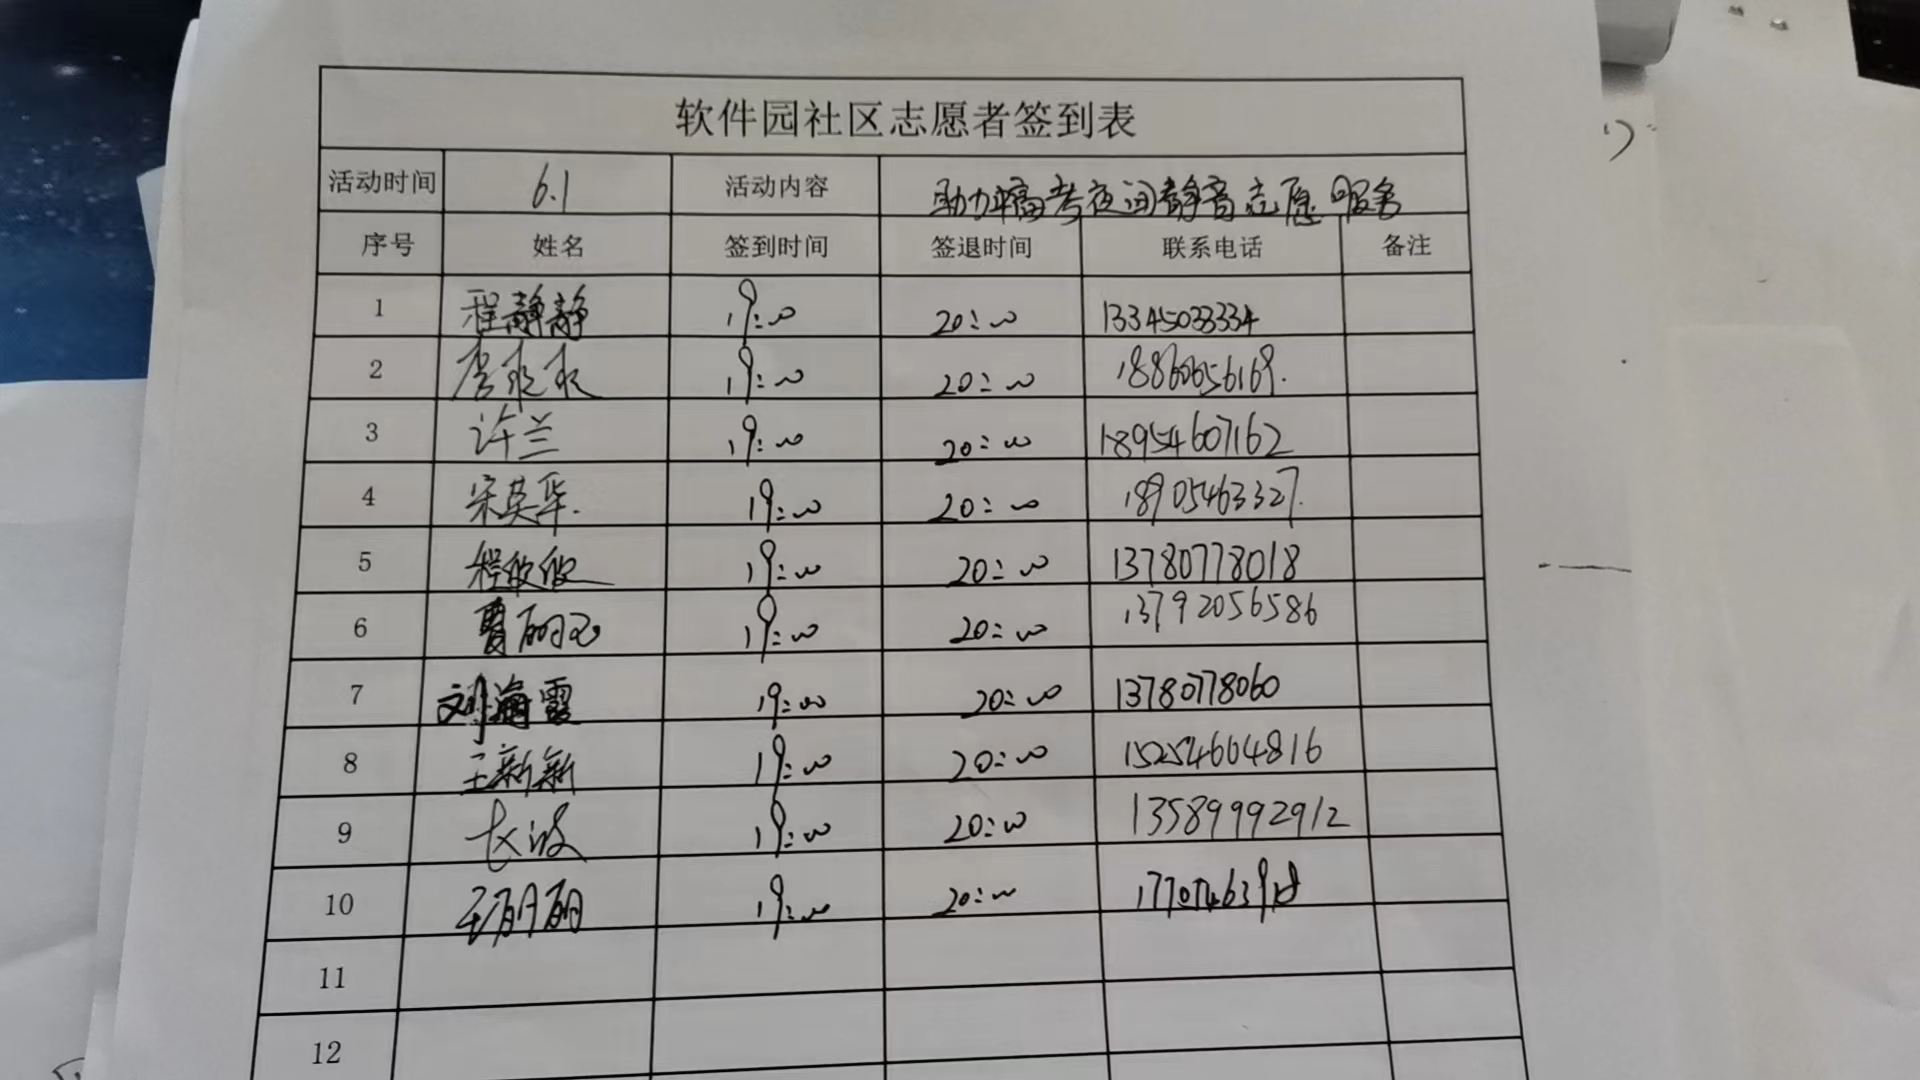 软件园社区志愿者签到表
活动时间 6.1 活动内容 助力高考夜间静音志愿服务
序号 姓名 签到时间 签退时间 联系电话 备注
1 程静静 19:00 20:00 13345033334
2 19:00 20:00 18860656169.
3 许兰 19:00 20:00 18954607162
4 宋英华. 19:00 20:00 18905463327.
5 程欣欣 19:00 20:00 13780778018
6 曹丽 19:00 20:00 13792056586
7 刘海霞 19:00 20:00 13780778060
8 王新新 19:00 20:00 15254604816
9 19:00 20:00 13589992912
10 王丽丽 19:00 20:00
11
12